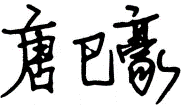 唐巴豪